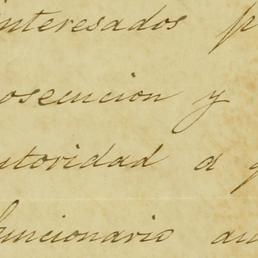 interesados p
osecucion y
utoridad a q
funcionario au